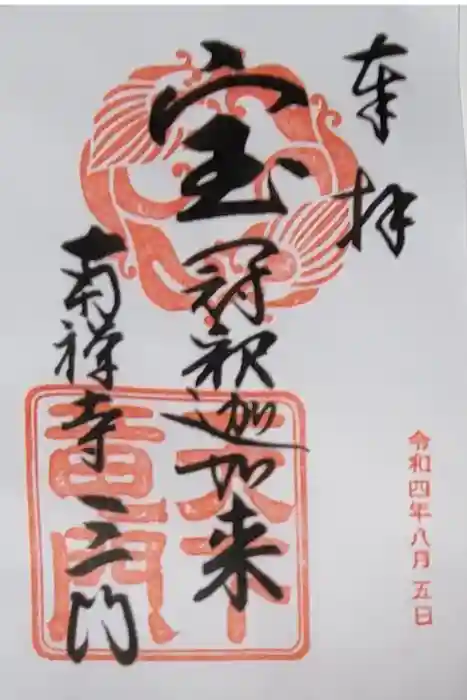 奉拝
宝冠釈迦如来
南禅寺三門
天下
竜門
令和四年八月五日